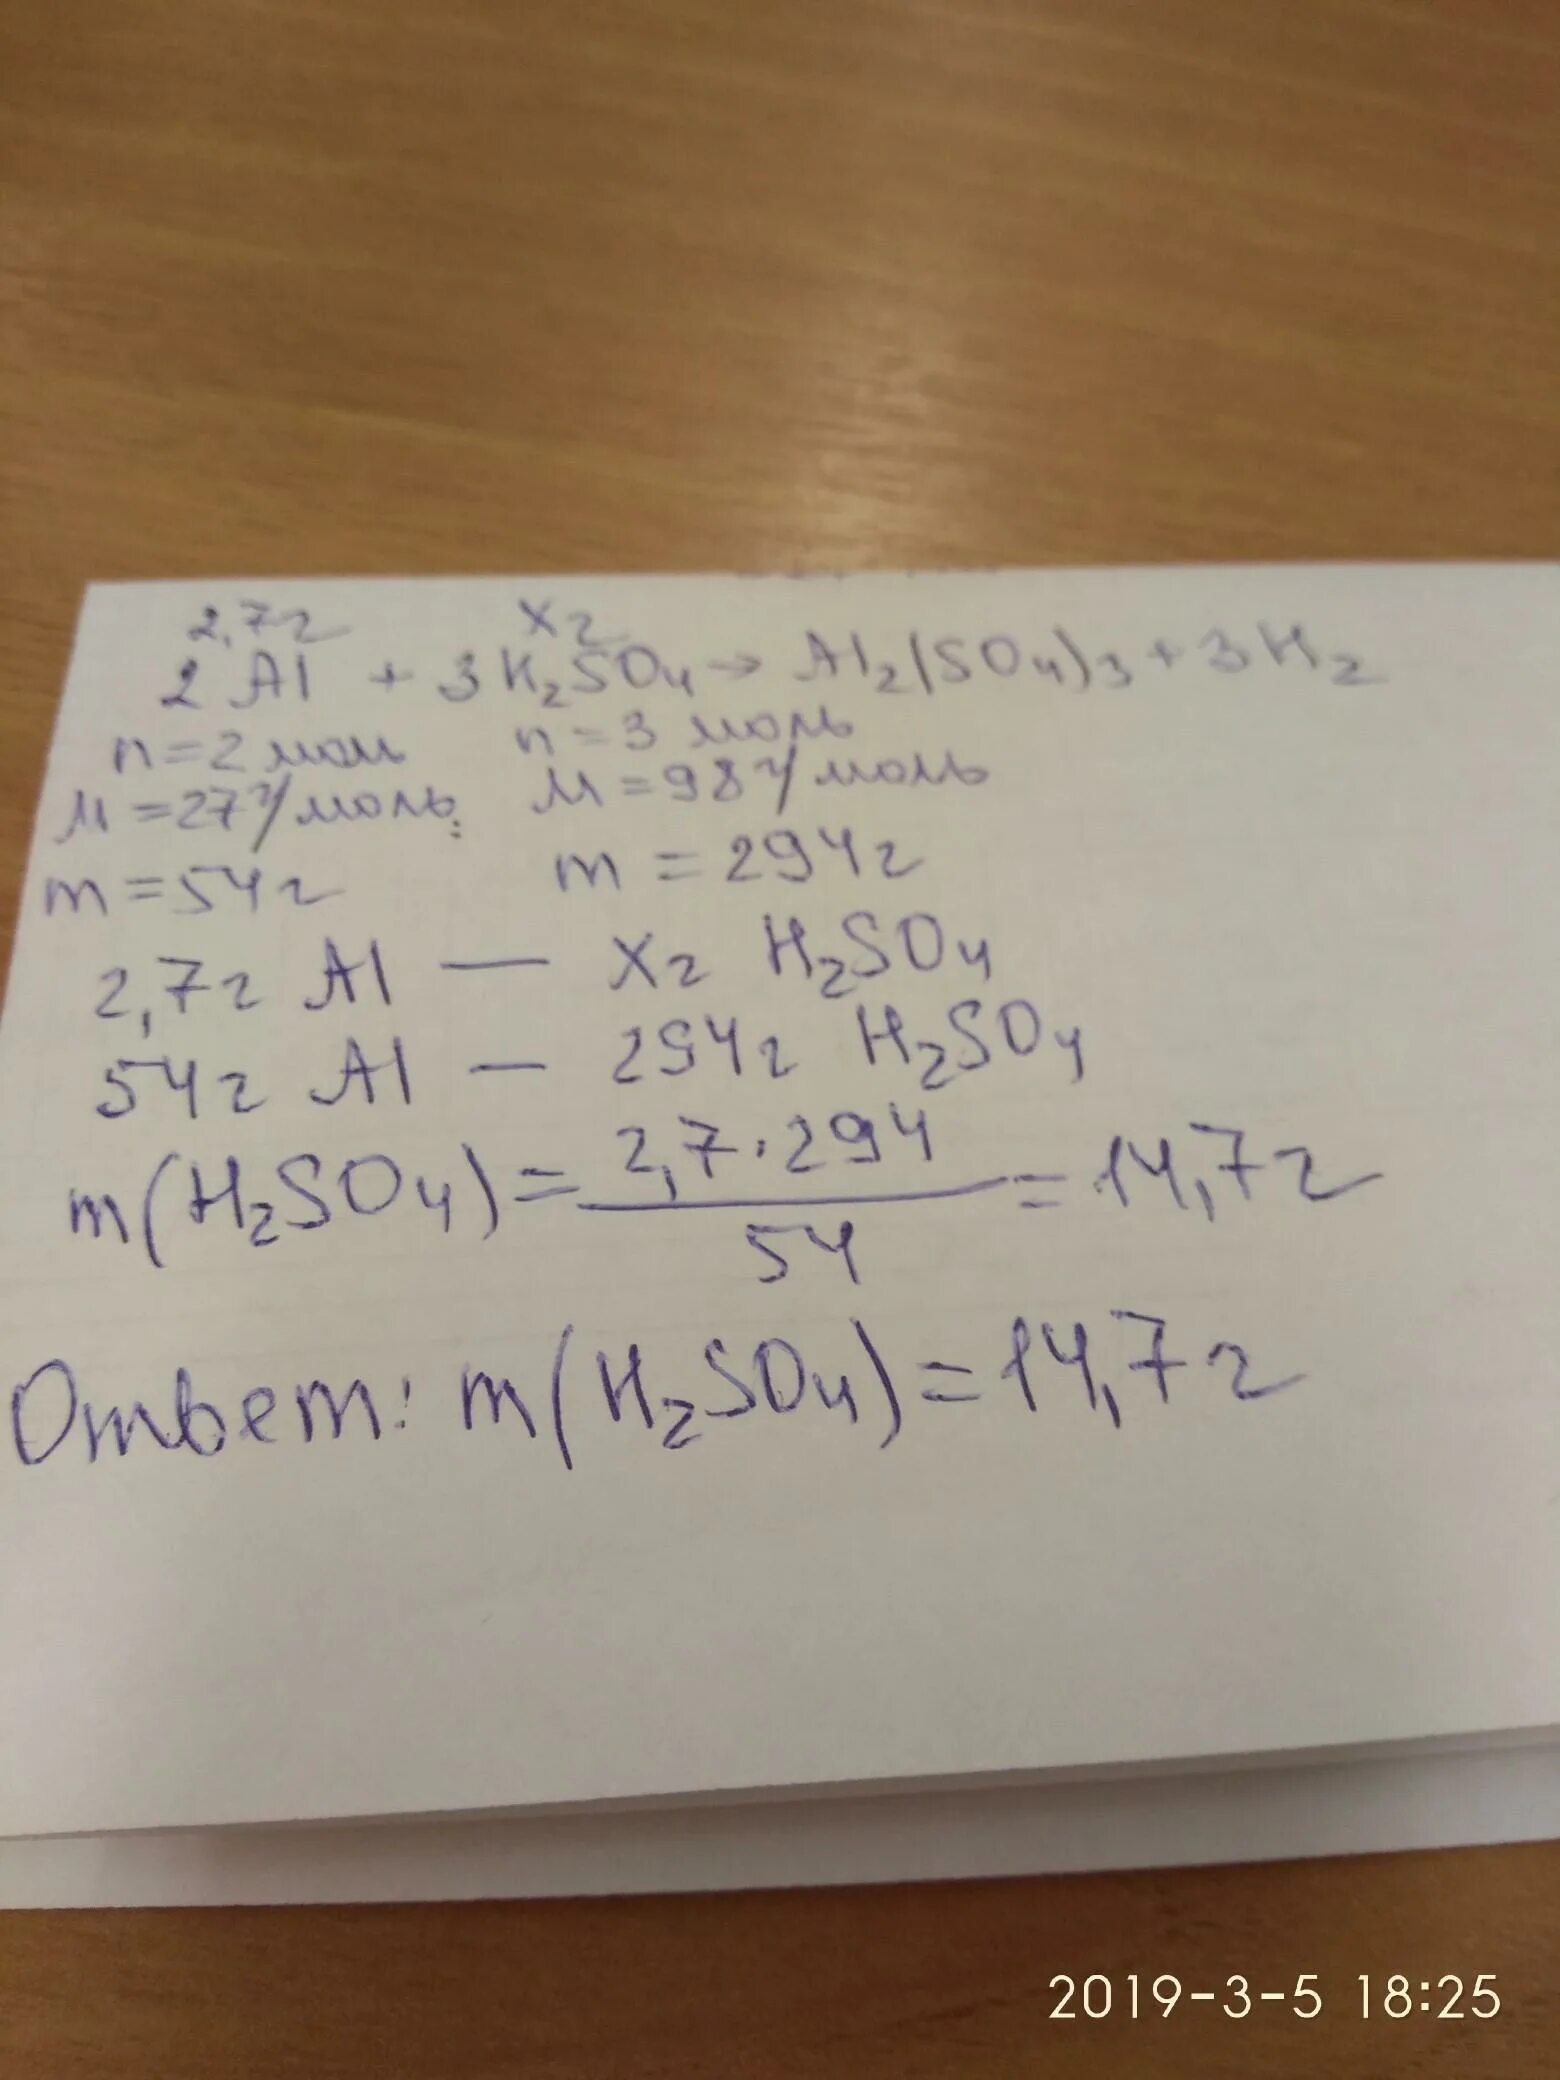 2,7г х г
2 Al + 3 H₂SO₄ → Al₂(SO₄)₃ + 3 H₂
n = 2 моль n = 3 моль
M = 27 г/моль M = 98 г/моль
m = 54 г m = 294 г
2,7 г Al — х г H₂SO₄
54 г Al — 294 г H₂SO₄
m(H₂SO₄) = 2,7 · 294 / 54 = 14,7 г
Ответ: m(H₂SO₄) = 14,7 г
2019-3-5 18:25